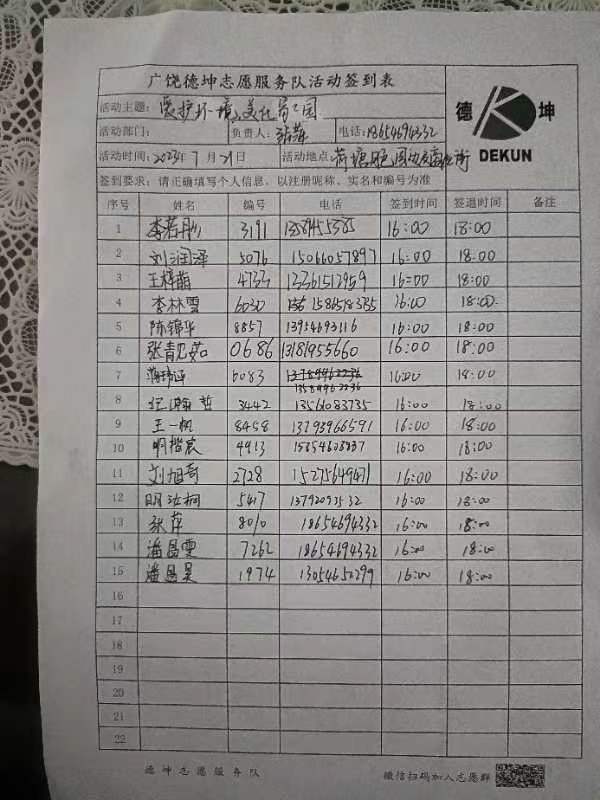 广饶德坤志愿服务队活动签到表
活动主题: 爱护环境,美化家园
德 坤
DEKUN
活动部门: 负责人: 张萍 电话: 18654694332
活动时间: 2023年 7月 21日 活动地点: 荷塘
签到要求: 请正确填写个人信息, 以注册昵称、实名和编号为准
序号 姓名 编号 电话 签到时间 签退时间 备注
1 3191 16:00 18:00
2 刘润泽 5076 15066057897 16:00 18:00
3 4733 13361512959 16:00 18:00
4 李林雪 6030 1586518335 16:00 18:00
5 陈锦华 8857 13954693116 16:00 18:00
6 0686 13181955660 16:00 18:00
7 6083 16:00 18:00
13589962236
8 纪瀚哲 3442 13561083735 16:00 18:00
9 王一帆 8458 13793966591 16:00 18:00
10 明楷宸 4913 16:00 18:00
11 刘旭奇 2728 15275649471 16:00 18:00
12 明汝桐 5417 16:00 18:00
13 张萍 8010 18654694332 16:00 18:00
14 潘昌雯 7262 18654694332 16:00 18:00
15 潘昌昊 1974 13054650299 16:00 18:00
16
17
18
19
20
21
22
德坤志愿服务队 微信扫码加入志愿群